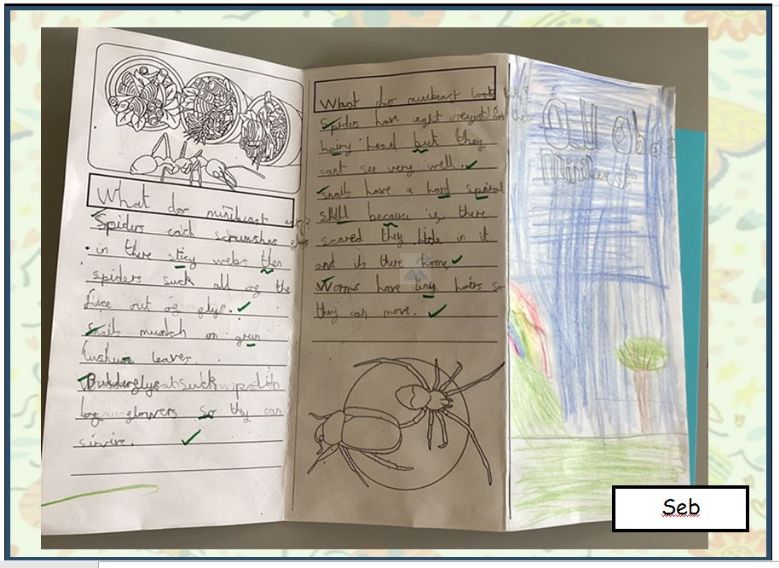 What do minibeast eat?
Spiders catch scrumshes
in there sticy webs then
spiders suck all og the
Juce out og glys.
Snails munch on green
lushus leaves
Butterglys suck
glowers so they can
sirvive.
What do minibeast look
Spiders have eight
hairy head but they
cant see very well
snails have a hard spiral
shell because is there
scared they hide in it
and its there home
Worms have tiny hairs so
they can move.
All
Seb